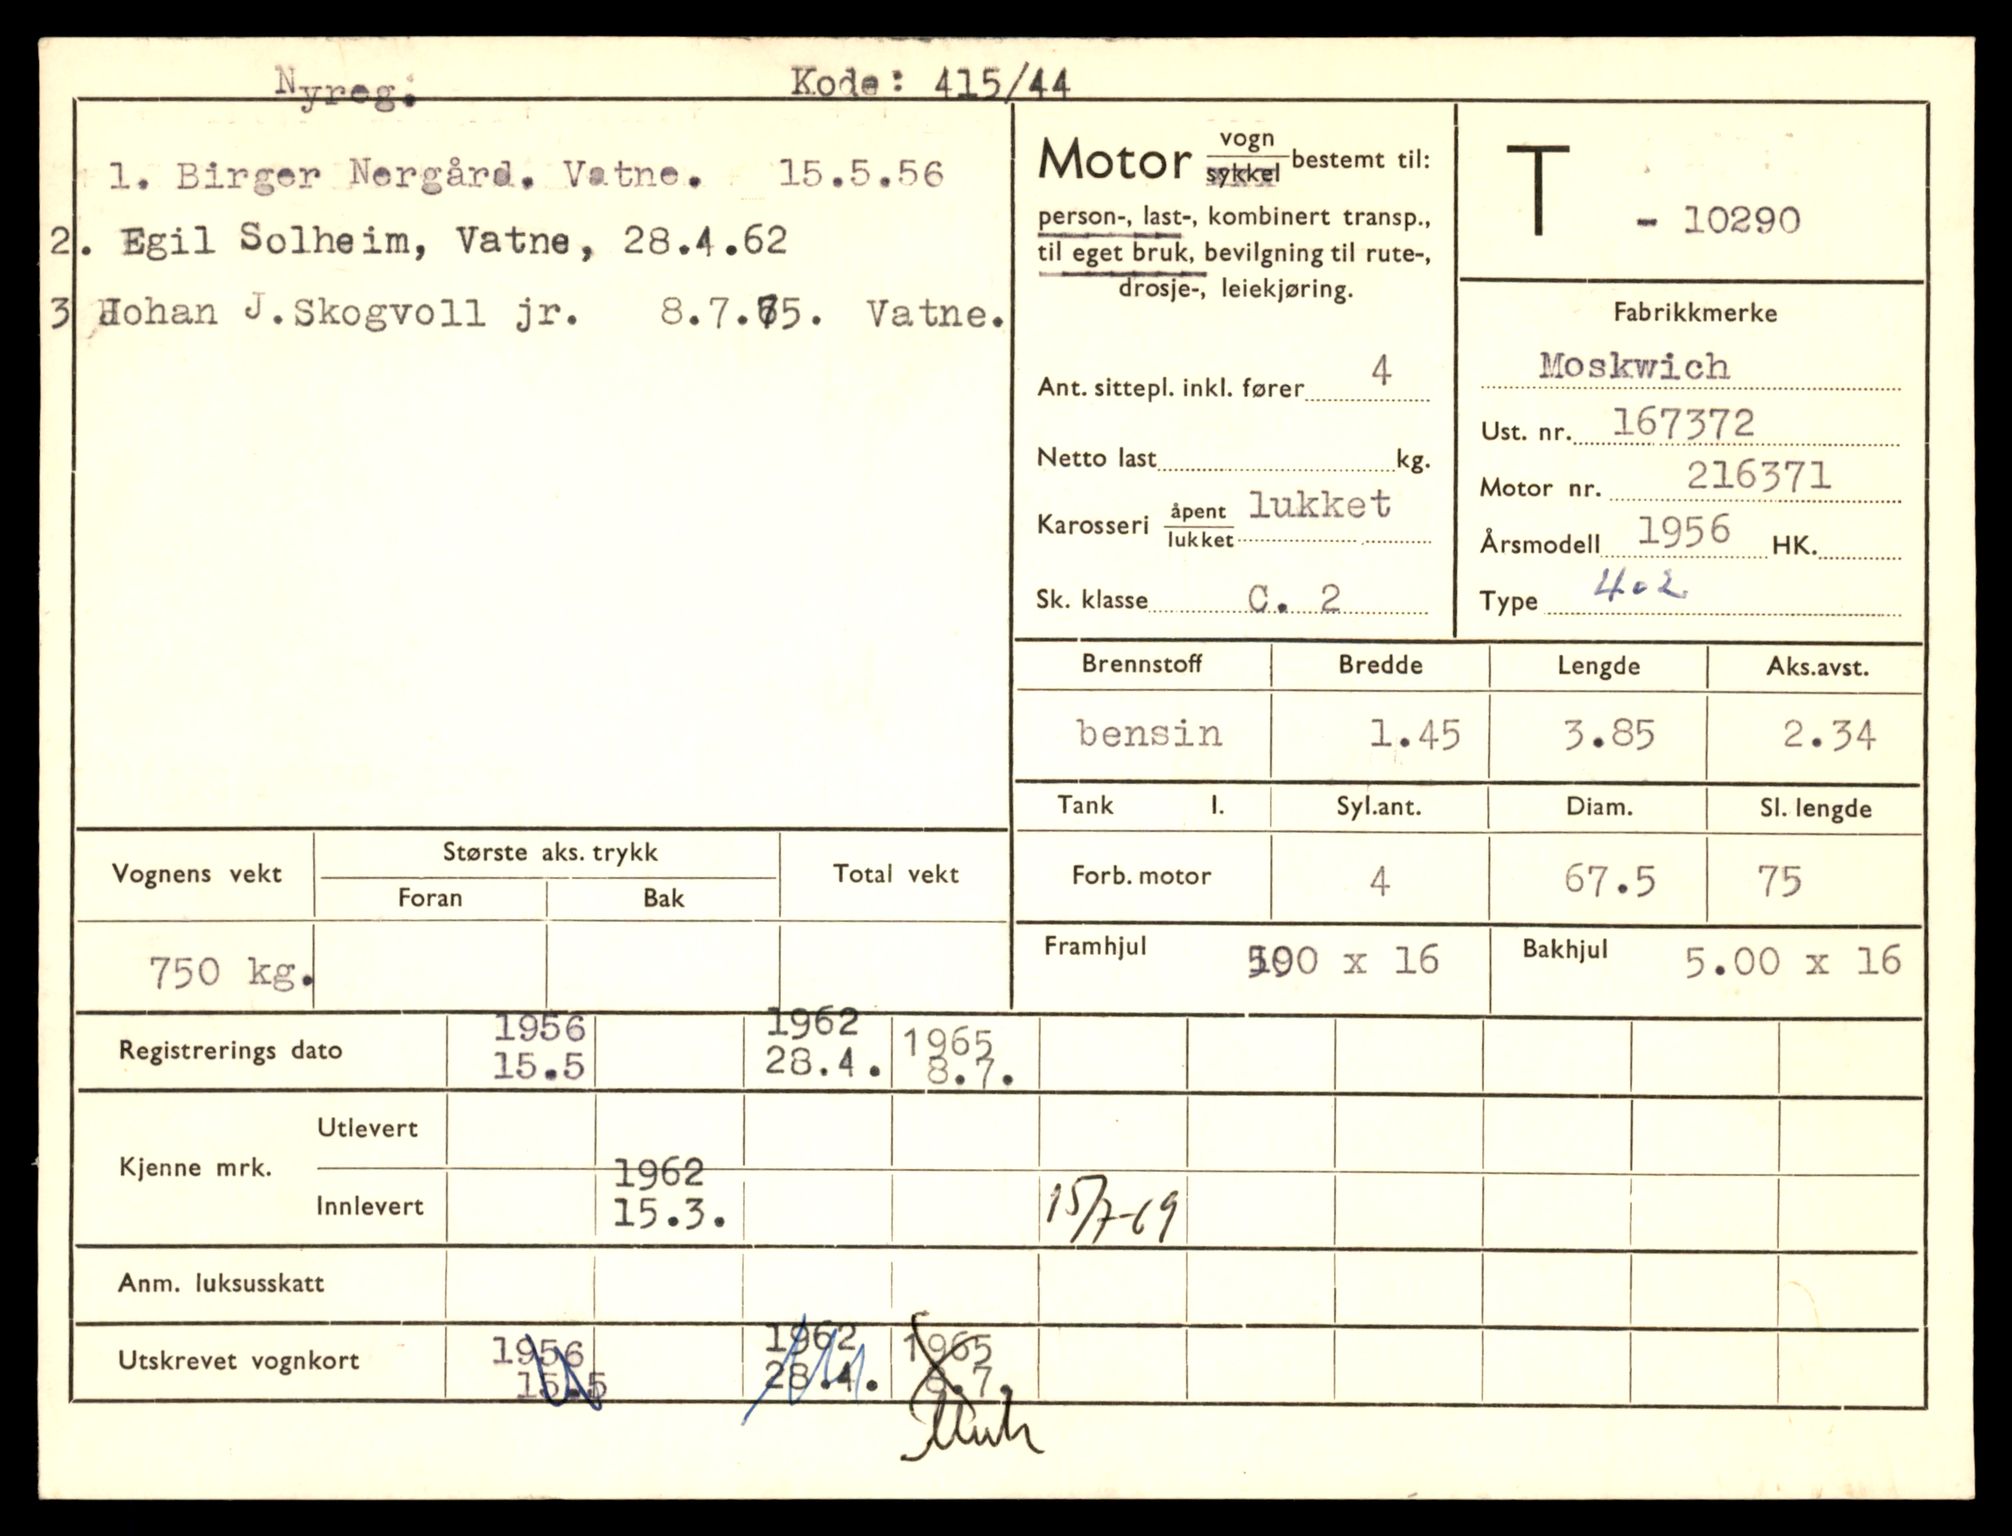 Nyreg. Kode: 415/44
1. Birger Nergård. Vatne. 15.5.56
2. Egil Solheim, Vatne, 28.4.62
3 Johan J.Skogvoll jr. 8.7.65. Vatne.
Motor vogn/sykkel bestemt til:
person-, last-, kombinert transp.,
til eget bruk, bevilgning til rute-,
drosje-, leiekjøring.
Ant. sittepl. inkl. fører 4
Netto last kg.
Karosseri åpent/lukket lukket
Sk. klasse C. 2
T - 10290
Fabrikkmerke
Moskwich
Ust. nr. 167372
Motor nr. 216371
Årsmodell 1956 HK.
Type 402
Brennstoff Bredde Lengde Aks.avst.
bensin 1.45 3.85 2.34
Tank l. Syl.ant. Diam. Sl. lengde
Forb. motor 4 67.5 75
Framhjul 500 x 16 Bakhjul 5.00 x 16
Vognens vekt Største aks. trykk Total vekt
Foran Bak
750 kg.
Registrerings dato 1956 1962 1965
15.5 28.4. 8.7.
Kjenne mrk. Utlevert
Innlevert 1962 15/7-69
15.3.
Anm. luksusskatt
Utskrevet vognkort 1956 1962 1965
15.5 28.4. 8.7.